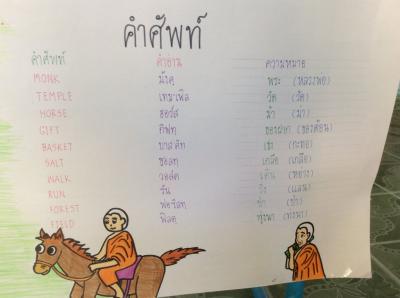 คำศัพท์
คำศัพท์ คำอ่าน ความหมาย
MONK มังคฺ พระ (หลวงพ่อ)
TEMPLE เทมเพิล วัด (วัด)
HORSE ฮอร์ส ม้า (มา)
GIFT กิฟทฺ ของฝาก (ของต้อน)
BASKET บาสคิท (กะทอ)
SALT ซอลทฺ เกลือ (เกลือ)
WALK วอล์ค เดิน (หย่าง)
RUN รัน วิ่ง (แลน)
FOREST ฟอเรสทฺ ป่า (ป่า)
FIELD ฟิลดฺ ทุ่งนา (ท่งนา)